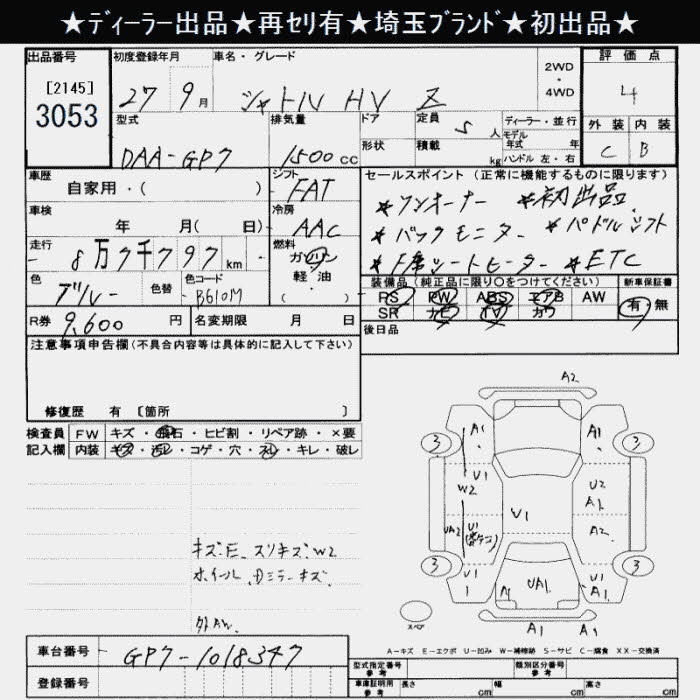 ★ﾃﾞｨｰﾗｰ出品★再ｾﾘ有★埼玉ﾌﾞﾗﾝﾄﾞ★初出品★
出品番号
[2145]
3053
初度登録年月
27年 9月
車名・グレード
シャトル HV Z
2WD
・
4WD
評価点
4
外装 内装
C B
型式
DAA-GP7
排気量
1500cc
ドア
形状
定員
5人
積載
kg
ディーラー・並行
モデル年式 年
ハンドル 左・右
車歴
自家用・( )
シフト
FAT
車検
年 月( 日)
冷房
AAC
走行
8万7千797km
燃料
ガソリン
軽油
( )
色
ブルー
色替
色コード
B610M
R券 9,600円
名変期限 月 日
セールスポイント(正常に機能するものに限ります)
*ワンオーナー *初出品
*バックモニター *パドルシフト
*F席シートヒーター *ETC
装備品(純正品に限り○をつけてください)
新車保証書
PS PW ABS エアB AW
SR ナビ TV カワ
有 無
後日品
注意事項申告欄(不具合内容等は具体的に記入して下さい)
修復歴 有 [箇所 ]
検査員
記入欄
FW キズ・飛石・ヒビ割・リペア跡・×要
内装 キズ・汚レ・コゲ・穴・スレ・キレ・破レ
キズ.E. スリキズ. W2
ホイール,Dミラーキズ.
外AW.
A2
3 A1 A1 3
U1
W2 U2
A1
UA2 U1 U1 A2
3 U1
1 A UA1 U1
A1 3
スペア
A1 A1
A-キズ E-エクボ U-凹み W-補修跡 S-サビ C-腐食 XX-交換済
車台番号
GP7-1018347
登録番号
型式指定番号
参考
類別区分番号
参考
車庫証明用
参考
長さ cm 幅 cm 高さ cm